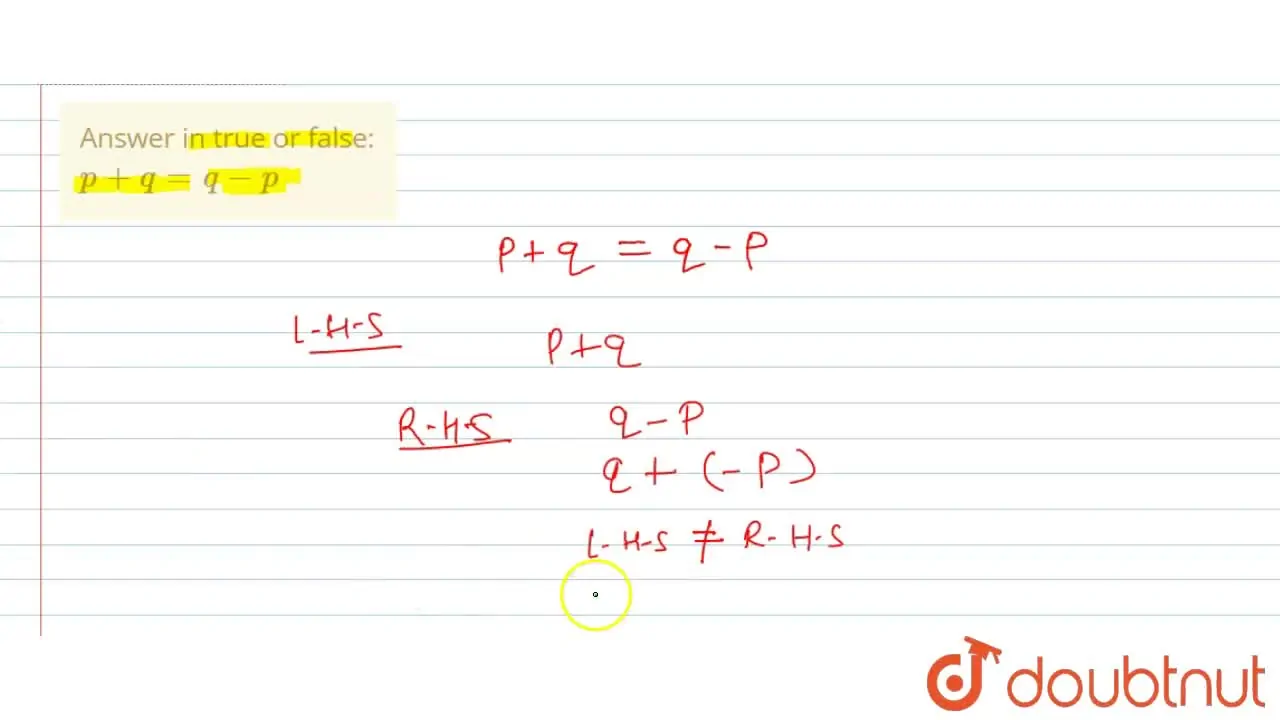 Answer in true or false:
p + q = q − p
P + q = q − P
L-H-S
P + q
R-H-S
q − P
q + (−P)
L-H-S ≠ R-H-S
doubtnut